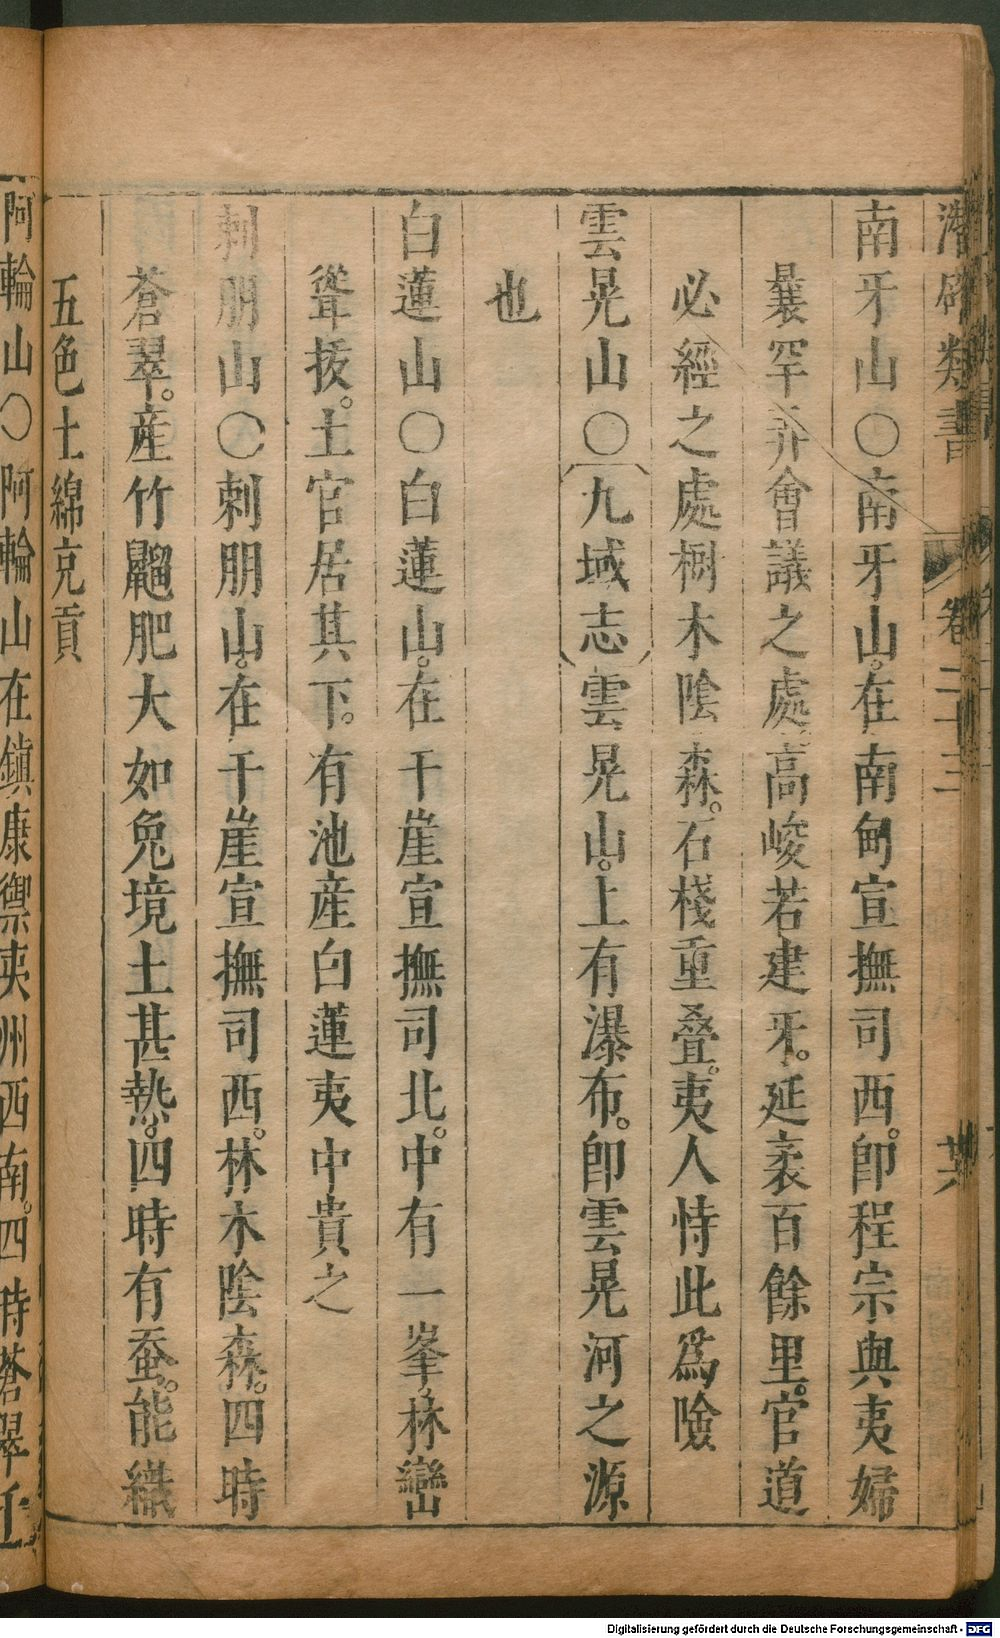 潛確類書 卷二十三 廿六
南牙山〇南牙山在南甸宣撫司西。卽程宗與夷婦
曩罕弄會議之處高峻若建牙。延袤百餘里。官道
必經之處樹木陰森。石棧重叠。夷人恃此爲險
雲晃山〇九域志雲晃山。上有瀑布。卽雲晃河之源
也
白蓮山〇白蓮山。在干崖宣撫司北。中有一峯。林巒
聳拔。土官居其下。有池産白蓮夷中貴之
刺朋山〇刺朋山。在干崖宣撫司西。林木陰森。四時
蒼翠。産竹鼺肥大如兔境土甚熱。四時有蚕。能織
五色土綿充貢
阿輪山〇阿輪山在鎮康禦夷州西南。四時蒼翠
Digitalisierung gefördert durch die Deutsche Forschungsgemeinschaft - DFG